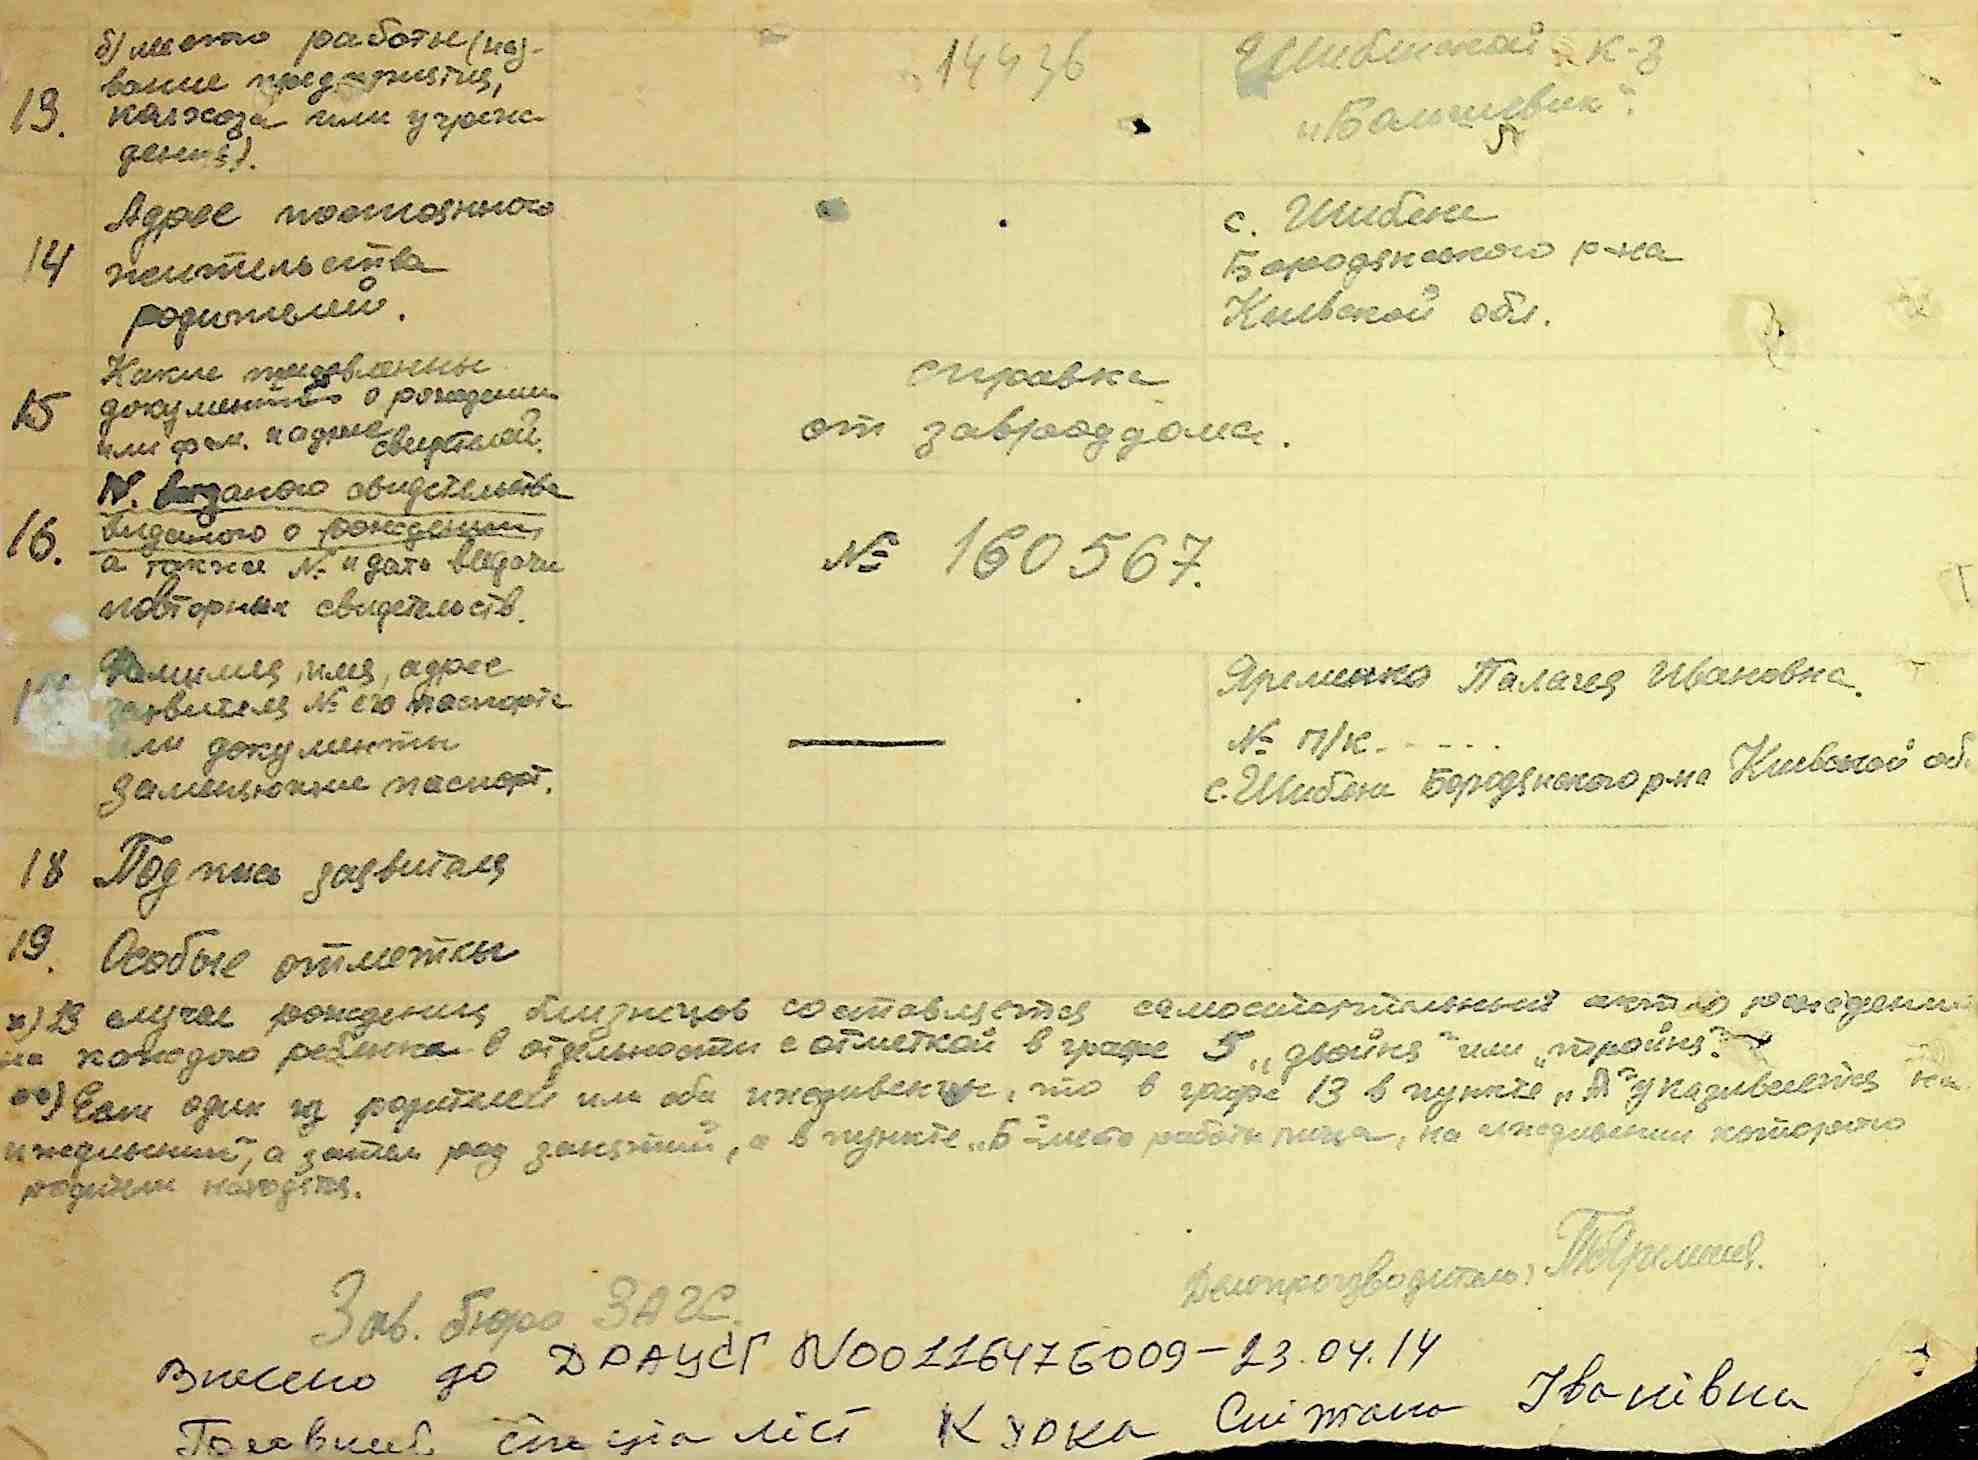 13.
б) место работы (наз-
вание предприятия,
колхоза или учреж-
дения).
14436
Шибенской к-з
"Большевик".
14
Адрес постоянного
жительства
родителей.
с. Шибене
Бородянского р-на
Киевской обл.
15
Какие предъявлены
документы о рождении
или фам. и адрес свидетелей.
справка
от завроддома.
16.
N. выданого свидетельства
выданого о рождении,
а также № и дата выдачи
повторных свидетельств.
№ 160567.
Фамилия, имя, адрес
заявителя № его паспорта
или документы
заменяющие паспорт.
Яременко Палагея Ивановна.
№ п/к. - - - - -
с. Шибене Бородянского р-на Киевской об.
18
Подпись заявителя
19.
Особые отметки
х) В случае рождения близнецов составляется самостоятельный акт о рождении
на каждого ребенка в отдельности с отметкой в графе 5 „двойня" или „тройня".
хх) Если один из родителей или оба иждивенцы, то в графе 13 в пункте „А" указывается на
иждивении, а затем род занятий, а в пункте „Б" место работы лица, на иждивении которого
родители находятся.
Делопроизводитель:
Зав. бюро ЗАГС.
Внесено до ДРАЦСГ N00116476009-23.04.14
Головний спеціаліст Курка Сніжана Іванівна